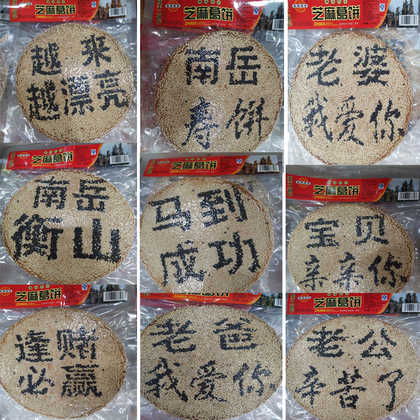 越来
越漂亮
芝麻葛饼
南岳
寿饼
芝麻葛饼
老婆
我爱你
芝麻葛饼
南岳
衡山
芝麻葛饼
马到
成功
芝麻葛饼
宝贝
亲亲你
芝麻葛饼
逢赌
必赢
芝麻葛饼
老爸
我爱你
芝麻葛饼
老公
辛苦了